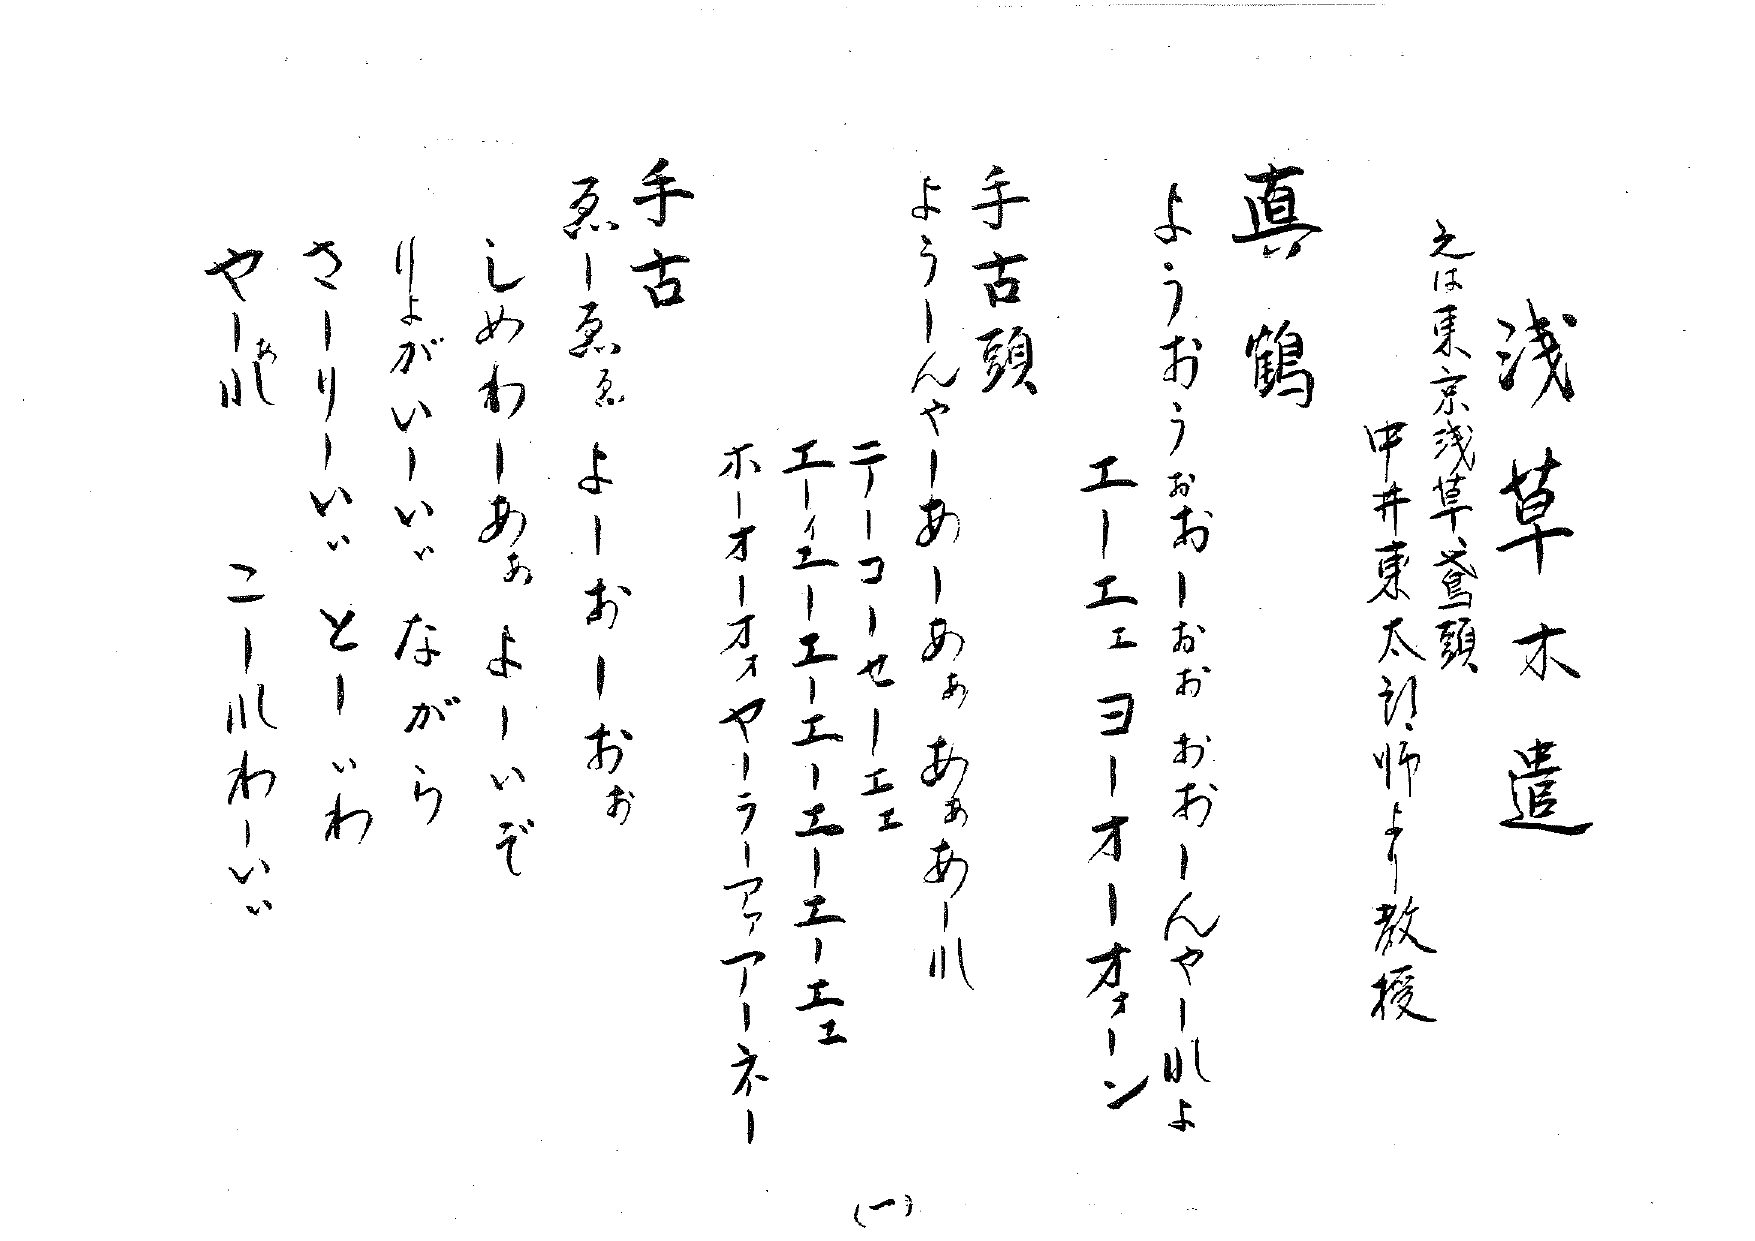 浅草木遣
之は東京浅草鳶頭
中井東太郎師より教授
真鶴
ようおうぉおーぉぉおおーんやールよ
エーエェヨーオーオォーン
手古頭
ようーんやーあーあぁあぁあール
テーコーセーエェ
エーィエーエーエーエーエーエェ
ホーオーオォヤーラーアァアーネー
手古
ゑーゑゑよーおーおぉ
しめわーあぁよーいぞ
りよがいーいぃながら
さーりーいぃとーぃわ
やーあル こールわーいぃ
(一)